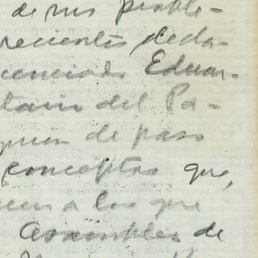 de sus proble-
recientes decla-
cenciado Eduar-
tario del Pa-
quien de paso
conceptos que,
cen a los que
Asamblea de